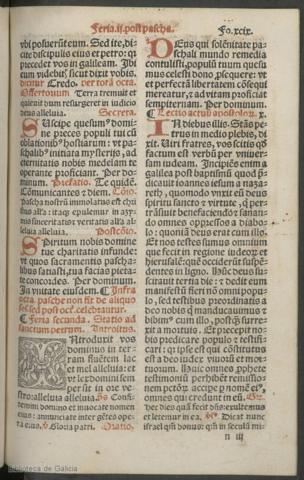 Feria.ij.post pascha. Fo.xcix.
vbi posuerūt eum. Sed ite, di-
cite discipulis eius et petro: q̄
precedet vos in galileam. Ibi
eum videbit, sicut dixit vobis.
dicitur Credo. oct.
Offertorium Terra tremuit et
quieuit dum resurgeret in iudicio
deus alleluia. Secreta.
Suscipe quesum⁹ domi-
ne preces populi tui cū
oblationib⁹ hostiarum: vt pa-
schalib⁹ initiata mysterijs, ad
eternitatis nobis medelam te
operante proficiāt. Per domi-
num. Prefatio. Te quidē.
Cōmunicantes ⁊ diem. Cōio.
Pascha nostrū immolatus est chri
stus alla: itaqȝ epulemur in azy-
mis sinceritatis ⁊ veritatis alla al-
leluia alleluia. Postcōio.
Spiritum nobis domine
tue charitatis infunde:
vt quos sacramentis pascha-
libus satiasti, tua facias pieta-
te concordes. Per dominum.
In vnitate eiusdem. Infra
octa. pasche non fit de aliquo
fel. sed post oct. celebratur.
Feria secunda. Statio ad
sanctum petrum. Introitus.
Introduxit vos
dominus in ter-
ram fluētem lac
et mel alleluia: et
vt lex domini sem
per sit in ore ve-
stro: alleluia alleluia. ps Confi-
temini domino et inuocate nomen
eius: annunciate inter gētes ope-
ra eius. Gloria patri. Oratio.
Deus qui solēnitate pa-
schali mundo remedia
contulisti, populū tuum quesu-
mus celesti dono prosequere: vt
et perfectā libertatem cōsequi
mereatur, et ad vitam proficiat
sempiternam. Per dominum.
Lectio actuū apostolorum.
In diebus illis. Stās pe-
trus in medio plebis, di-
xit. Viri fratres, vos scitis qđ
factum est verbū per vniuer-
sam iudeam. Incipiēs enim a
galilea post baptismū quod p̄-
dicauit ioannes iesum a naza-
reth, quomodo vnxit eū deus
spiritu sancto ⁊ virtute, qui per-
trāsiit benefaciendo ⁊ sanan-
do omnes oppressos a diabo-
lo: quoniā deus erat cum illo.
Et nos testes sumus omnium
que fecit in regione iudeoȝ et
hierusalē: quē occiderūt suspē-
dentes in ligno. Hūc deus sus-
citauit tertia die: ⁊ dedit eum
manifestū fieri nō omni popu-
lo, sed testibus preordinatis a
deo nobis q̄ manducauimus ⁊
bibim⁹ cum illo, postq̄ȝ surre-
xit a mortuis. Et precepit no-
bis predicare populo ⁊ testifi-
cari: quia ipse est qui cōstitutus
est a deo iudex viuorū et mor-
tuorum. Huic omnes prophete
testimoniū perhibēt remissio-
nem pctōȝ accipe p̱ nomē ei⁹,
omnes qui credunt in eum. Gr.
Hec dies quā fecit dn̄s: exultemus
et letemur in ea. Dicat nunc
israel quoniā bon⁹: qm̄ in seculū mi-
n iij
Biblioteca de Galicia